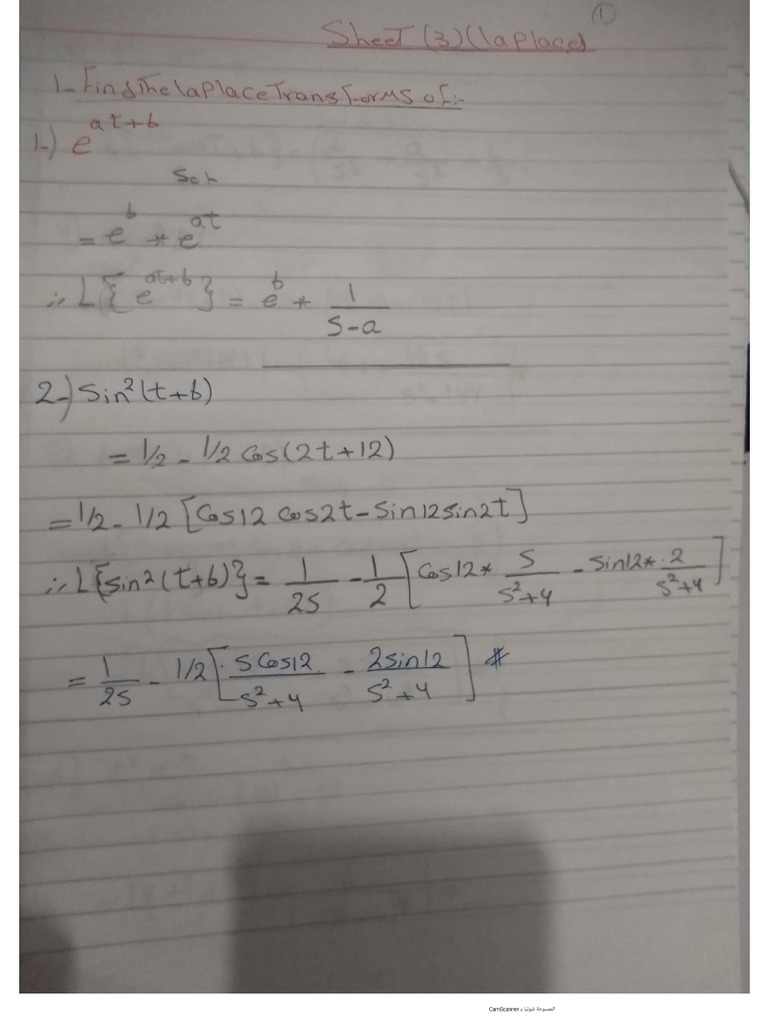 ①
Sheet (3) (laplace)
1- Find The laplace Transforms of:-
1-) e^{at+b}
Sol
= e^b * e^{at}
∴ L{e^{at+b}} = e^b * \frac{1}{s-a}
2-) Sin²(t+6)
= 1/2 - 1/2 Cos(2t+12)
= 1/2 - 1/2 [Cos12 cos2t - Sin12 sin2t]
∴ L{sin²(t+6)} = \frac{1}{2s} - \frac{1}{2} [Cos12 * \frac{s}{s²+4} - sin12 * \frac{2}{s²+4}]
= \frac{1}{2s} - 1/2 [\frac{s Cos12}{s²+4} - \frac{2sin12}{s²+4}] #
الممسوحة ضوئيا بـ CamScanner